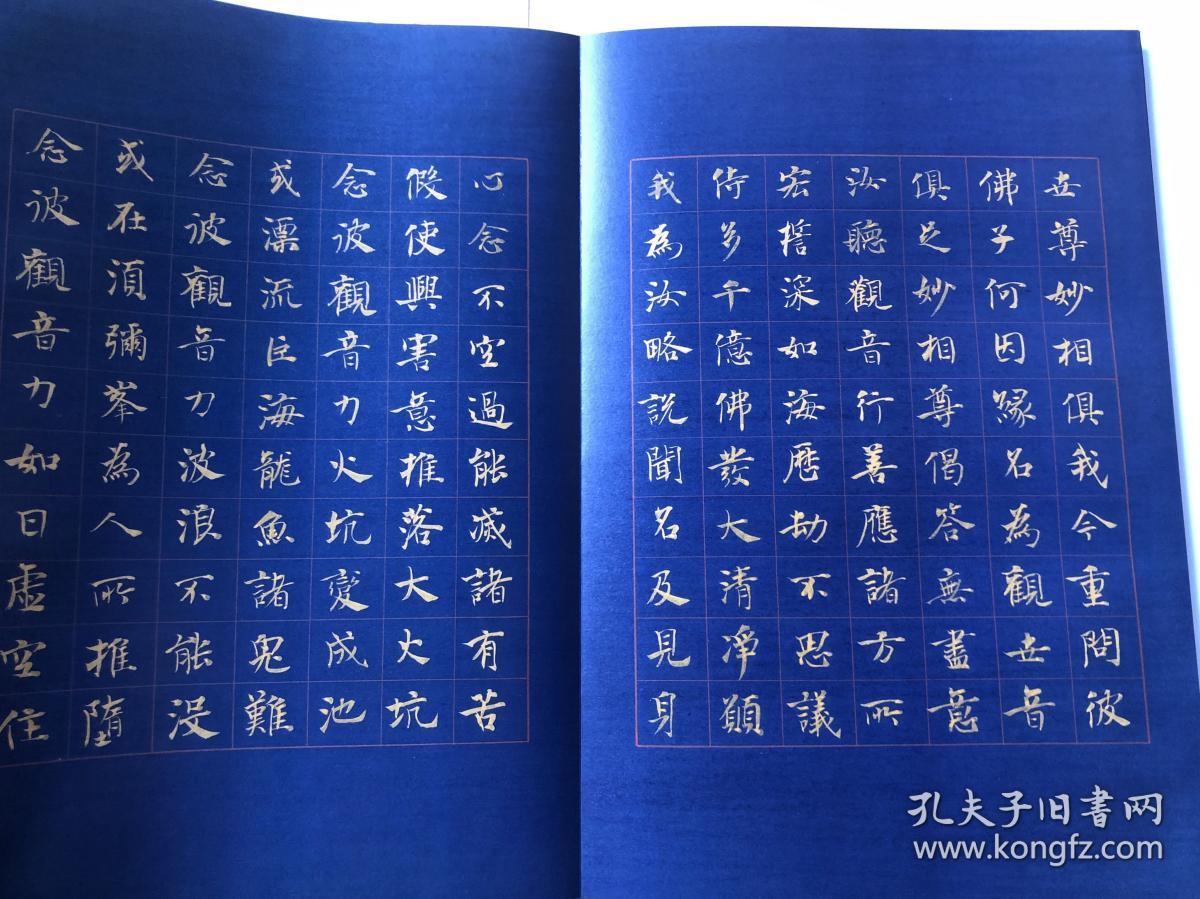 世尊妙相俱我今重問彼
佛子何因緣名為觀世音
俱足妙相尊偈答無盡意
汝聽觀音行善應諸方所
宏誓深如海歷劫不思議
侍多千億佛發大清淨願
我為汝略說聞名及見身
心念不空過能滅諸有苦
假使興害意推落大火坑
念彼觀音力火坑變成池
或漂流巨海龍魚諸鬼難
念彼觀音力波浪不能沒
或在須彌峯為人所推墮
念彼觀音力如日虛空住
孔夫子旧书网
www.kongfz.com